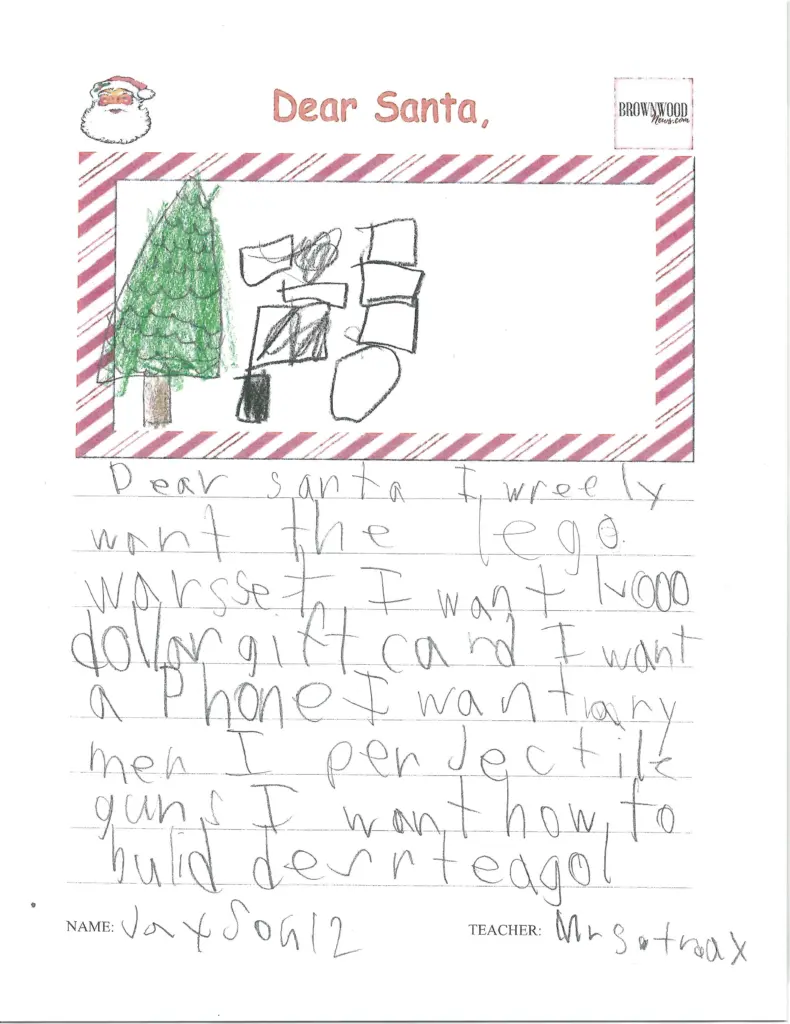 Dear Santa,
BROWNWOOD
News.com
Dear santa I wreely
want the lego
warsset I want 1,000
dollar gift card I want
a Phone I want army
men I perjectile
guns I want how to
bulid derrt eagol
NAME: JaxSon 12
TEACHER: Mrs. traax